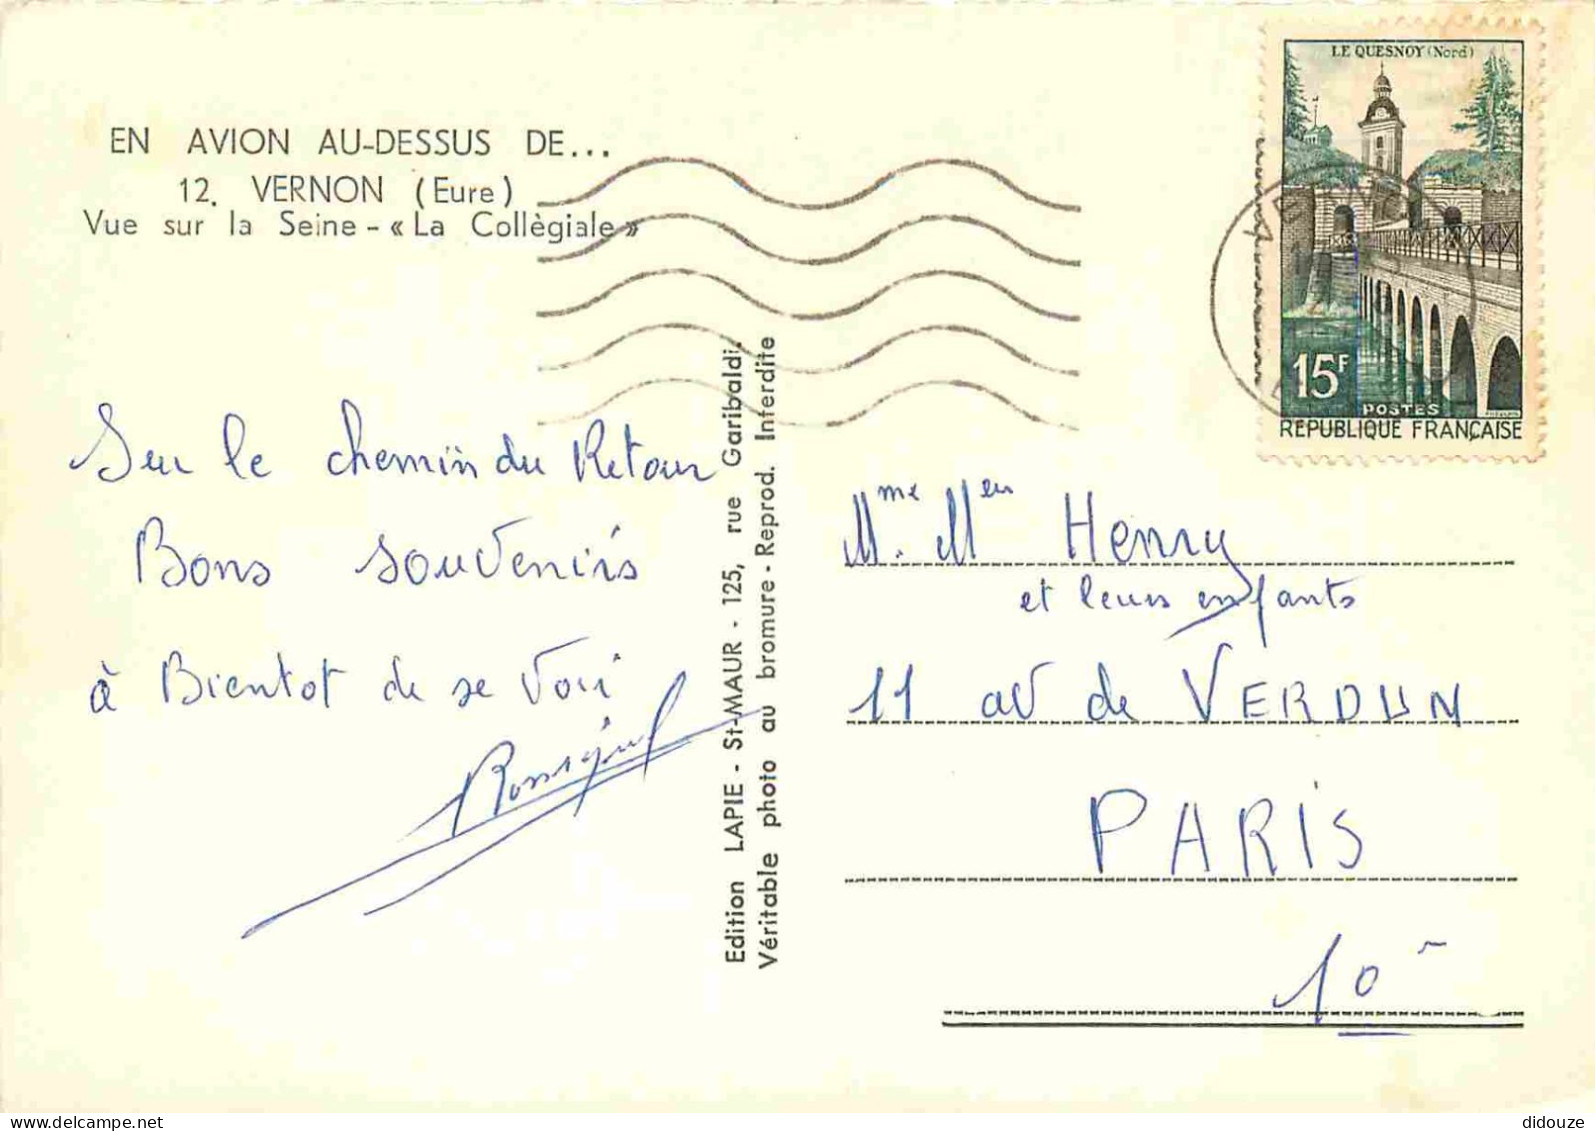 EN AVION AU-DESSUS DE...
12. VERNON (Eure)
Vue sur la Seine - « La Collègiale »
LE QUESNOY (Nord)
15F
POSTES
REPUBLIQUE FRANÇAISE
Sur le chemin du Retour
Bons souvenirs
à Bientot de se Voir
Edition LAPIE - St-MAUR - 125, rue Garibaldi.
Véritable photo au bromure - Reprod. Interdite
Mme. Henry
et leurs enfants
11 av de VERDUN
PARIS
10
didouze